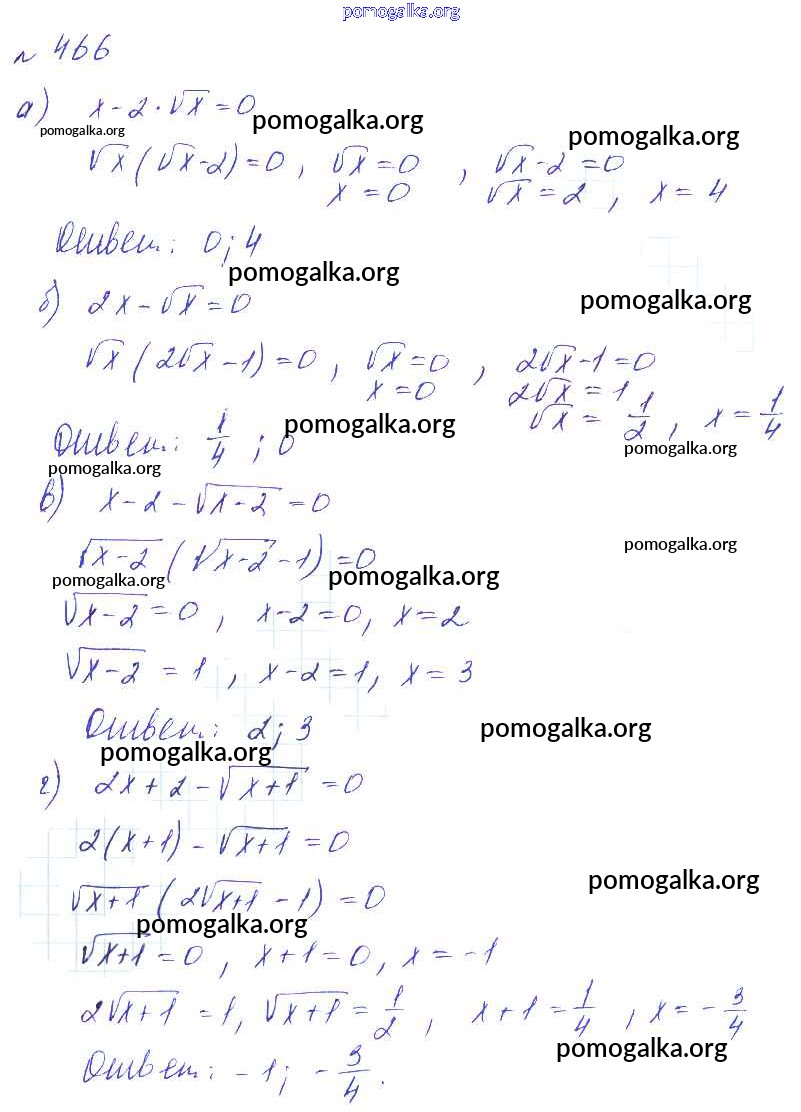 pomogalka.org
№ 466
а) x - 2 · √x = 0
pomogalka.org pomogalka.org pomogalka.org
√x (√x - 2) = 0, √x = 0, √x - 2 = 0
x = 0 √x = 2, x = 4
Ответ: 0; 4
pomogalka.org
б) 2x - √x = 0
pomogalka.org
√x (2√x - 1) = 0, √x = 0, 2√x - 1 = 0
x = 0 2√x = 1
√x = 1/2, x = 1/4
Ответ: 1/4; 0
pomogalka.org
pomogalka.org pomogalka.org
в) x - 2 - √(x - 2) = 0
√(x - 2) (√(x - 2) - 1) = 0
pomogalka.org
pomogalka.org pomogalka.org
√(x - 2) = 0, x - 2 = 0, x = 2
√(x - 2) = 1, x - 2 = 1, x = 3
Ответ: 2; 3
pomogalka.org
pomogalka.org
г) 2x + 2 - √(x + 1) = 0
2(x + 1) - √(x + 1) = 0
pomogalka.org
√(x + 1) (2√(x + 1) - 1) = 0
pomogalka.org
√(x + 1) = 0, x + 1 = 0, x = -1
2√(x + 1) = 1, √(x + 1) = 1/2, x + 1 = 1/4, x = -3/4
pomogalka.org
Ответ: -1; -3/4.